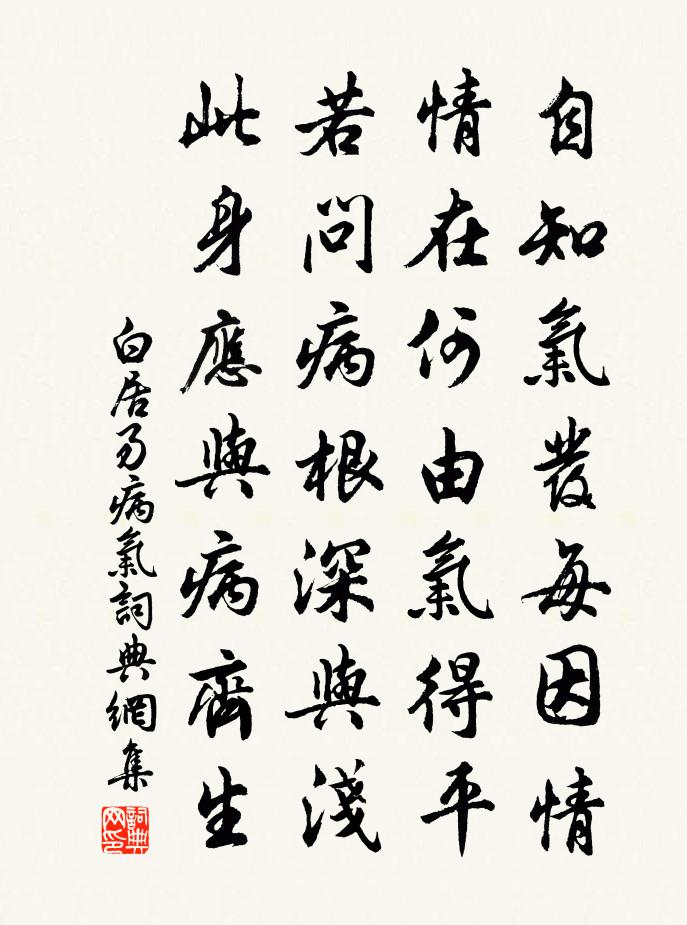 自知氣發每因情
情在何由氣得平
若問病根深與淺
此身應與病齊生
白居易病氣詞典網集
詞典网印